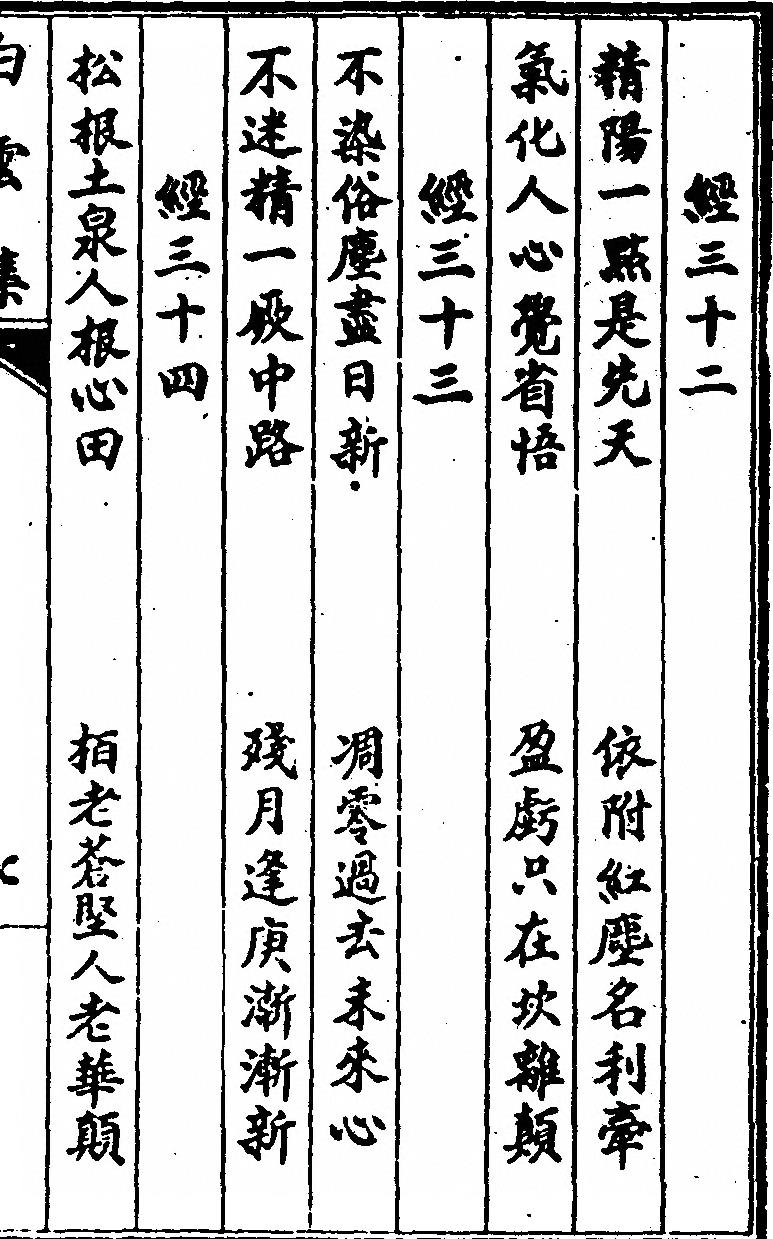 經三十二
精陽一點是先天 依附紅塵名利牽
氣化人心覺省悟 盈虧只在坎離顛
經三十三
不染俗塵盡日新 凋零過去未來心
不迷精一厥中路 殘月逢庚漸漸新
經三十四
松根土泉人根心田 栢老蒼堅人老華顛
白雲集